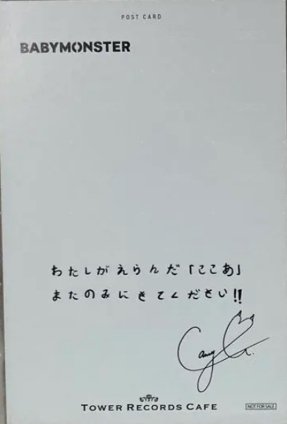 POST CARD
BABYMONSTER
わたしがえらんだ「ここあ」
またのみにきてください!!
TOWER RECORDS CAFE
NOT FOR SALE